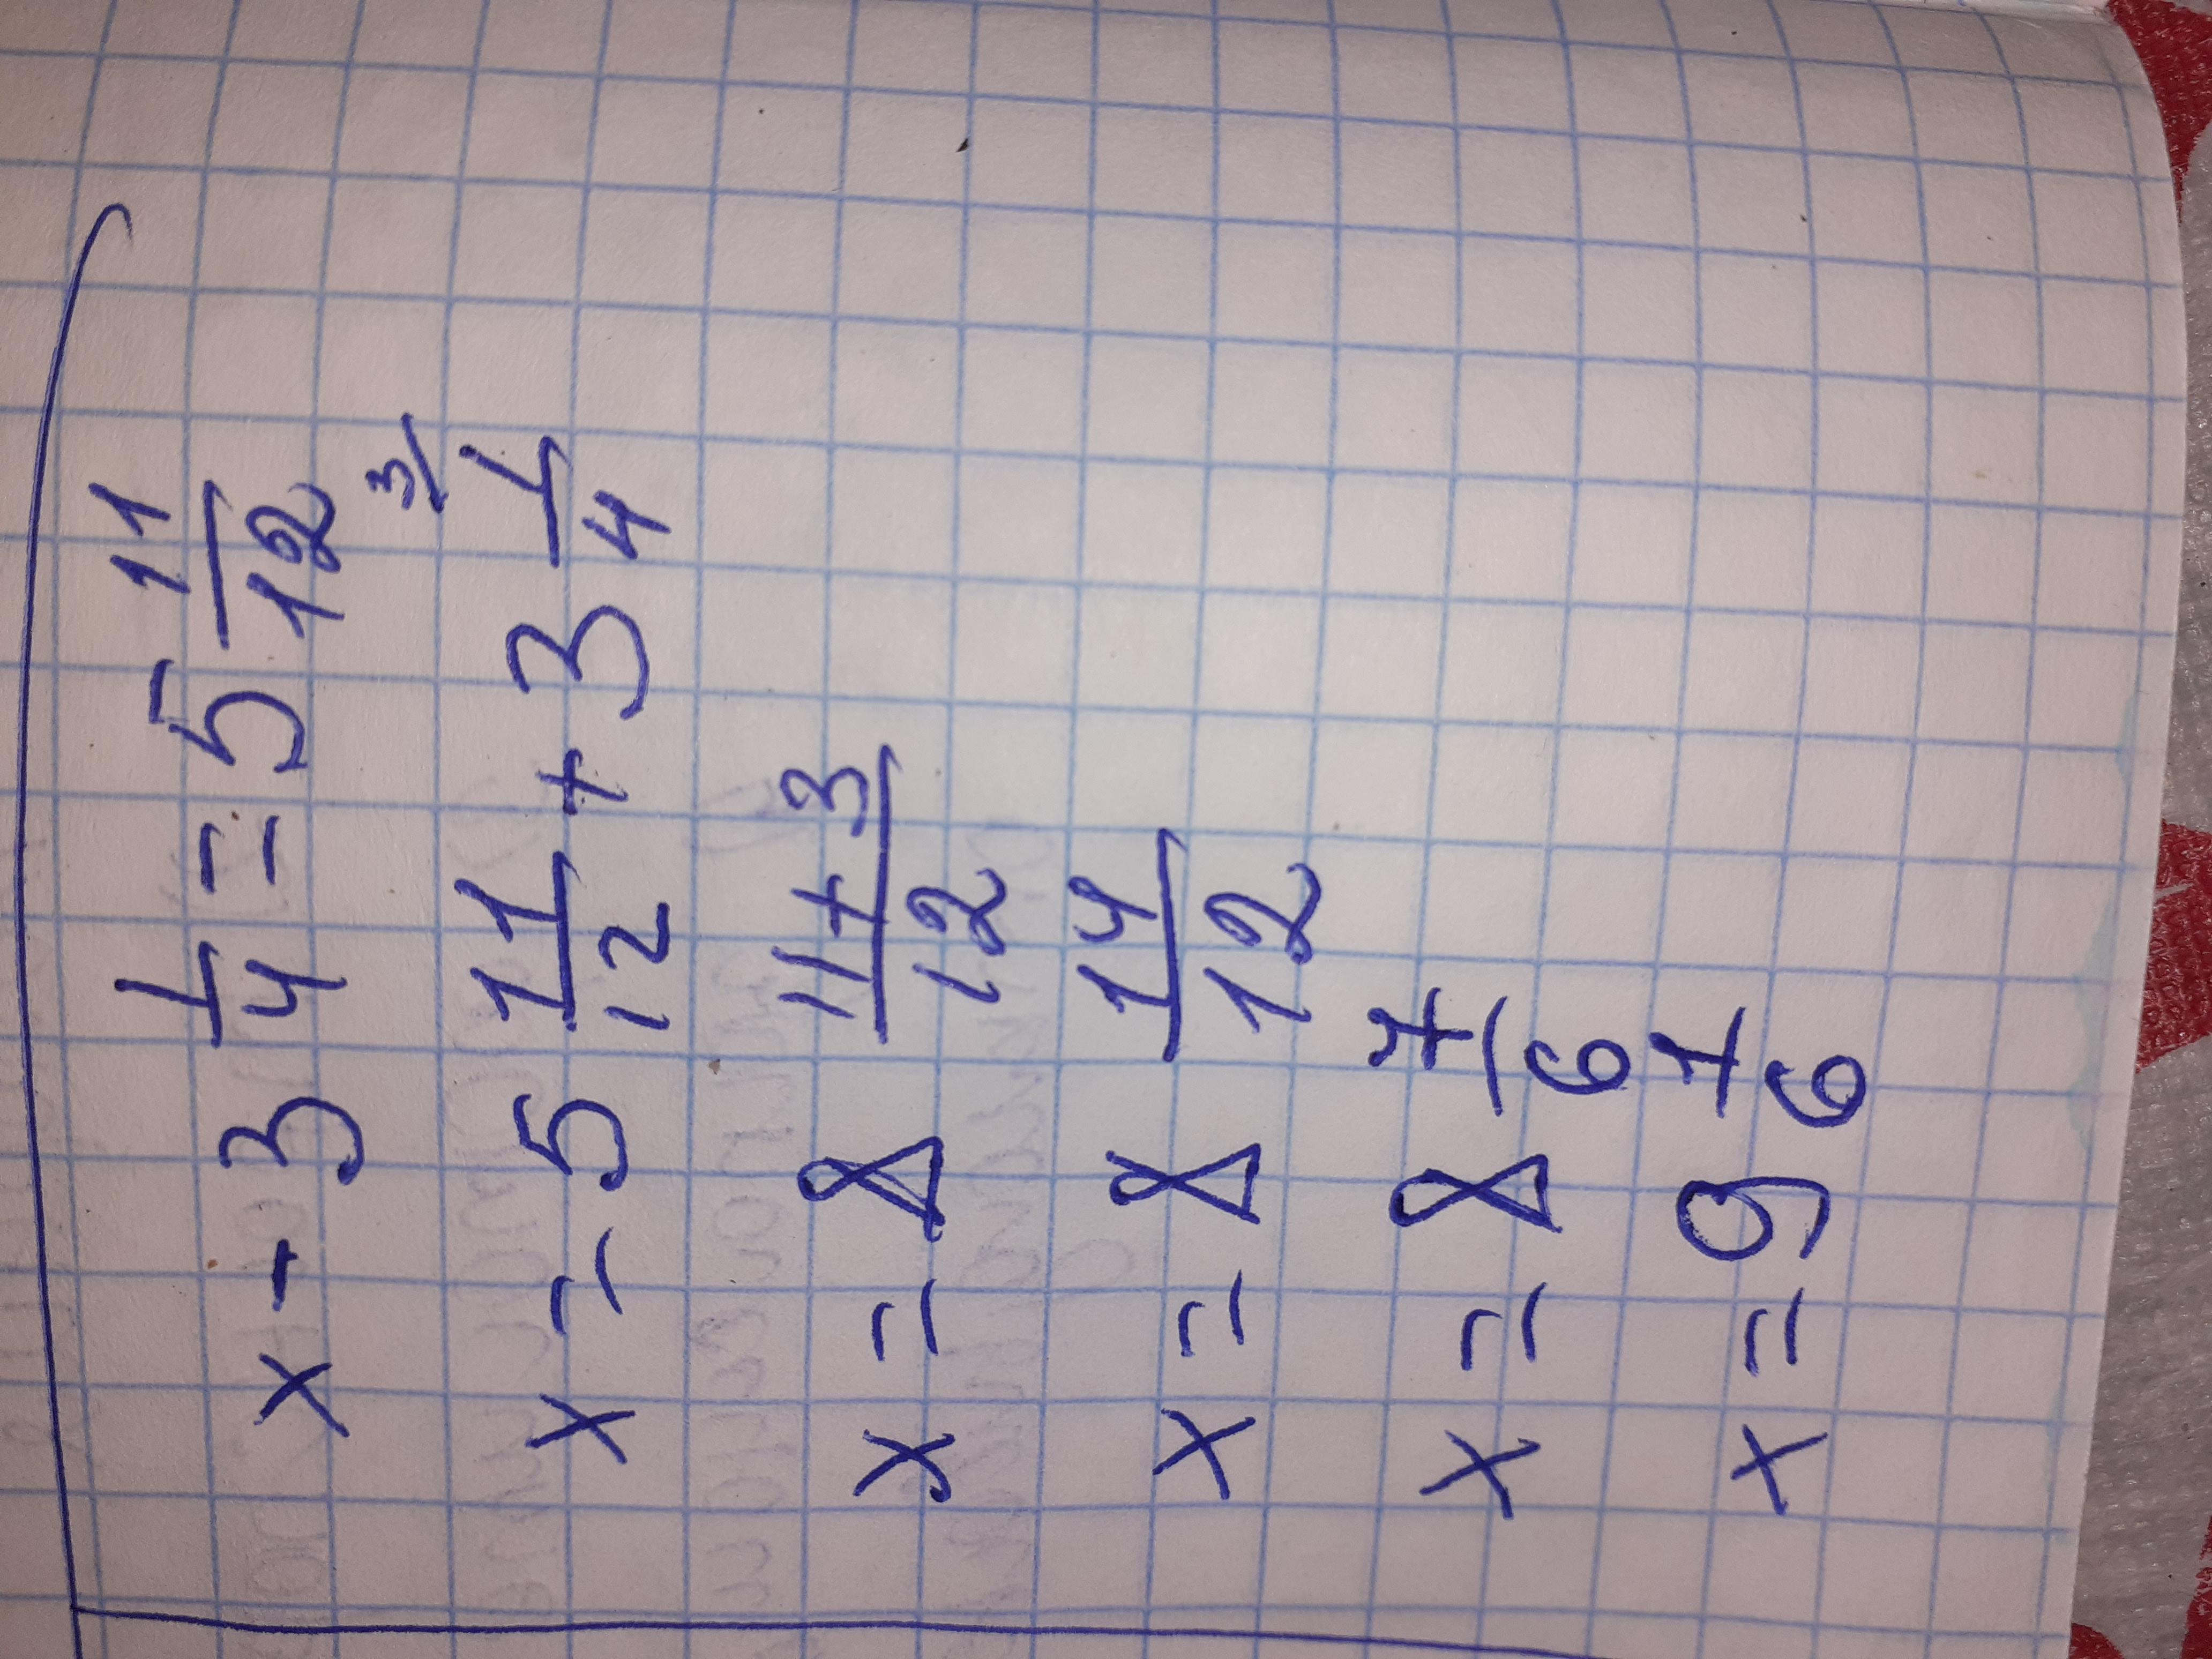 x - 3 1/4 = 5 11/12
x = 5 11/12 + 3 1/4 3/
x = 8 11+3/12
x = 8 14/12
x = 8 7/6
x = 9 1/6